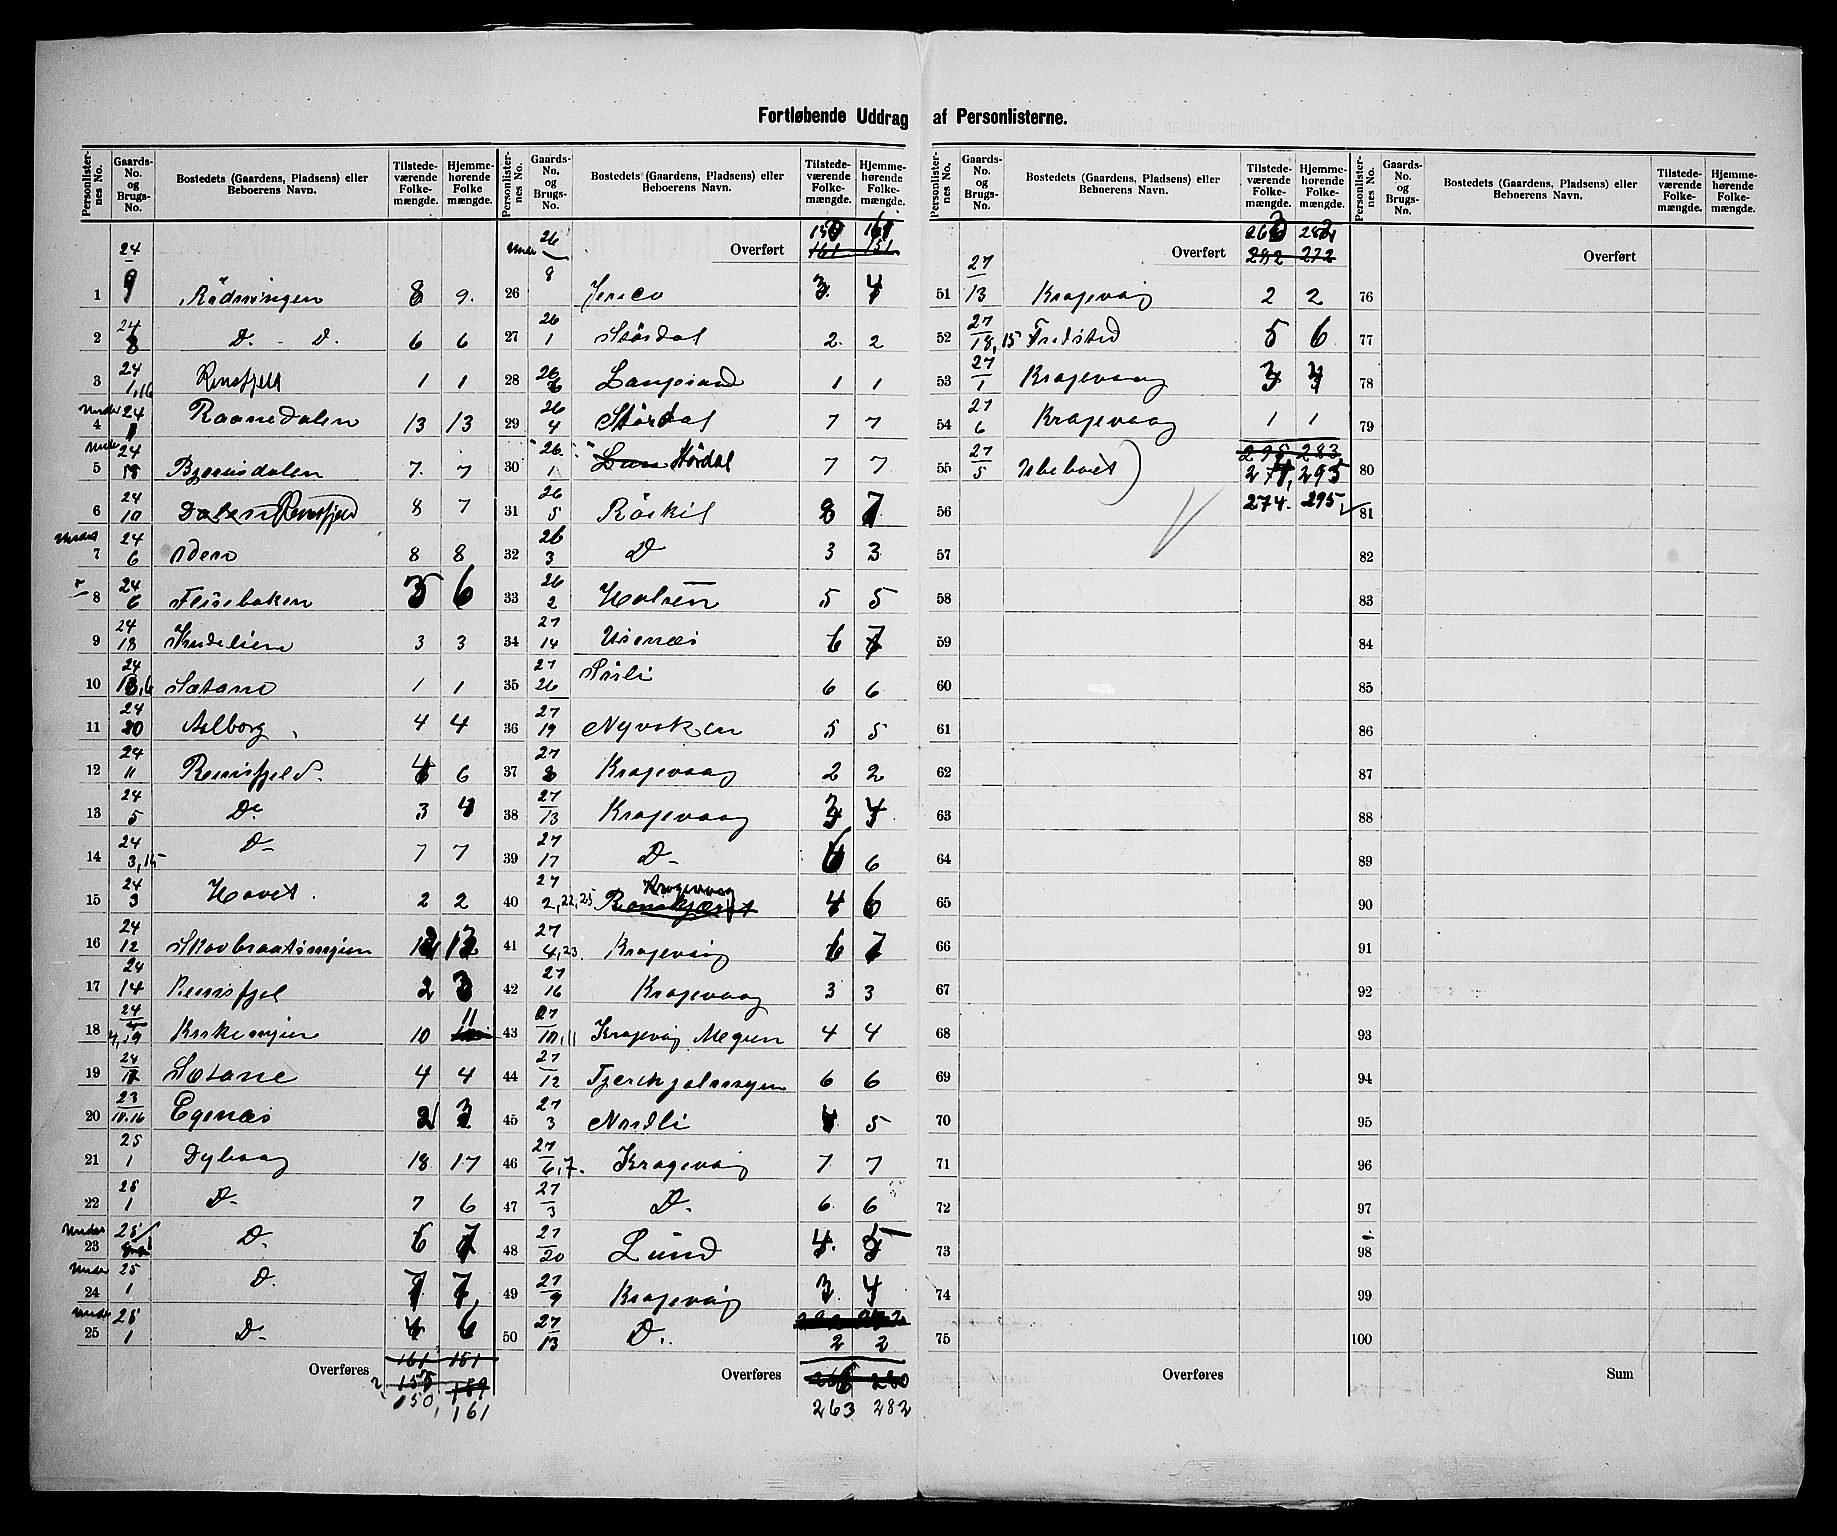 Fortløbende Uddrag af Personlisterne.
Personlister-nes No. Gaards-No. og Brugs-No. Bostedets (Gaardens, Pladsens) eller Beboerens Navn. Tilstede-værende Folke-mængde. Hjemme-hørende Folke mængde.
1 24/9 Rødmyngen 8 9.
2 24/8 D. - D. 6 6
3 24/1,16 Rensfjeld 1 1
4 under 24/1 Raanedalen 13 13
5 under 24/18 Bjennsdalen 7. 7
6 24/10 Dalen Rensfjeld 8 7
7 under 24/6 Iden 8 8
8 24/6 Flisebakken 5 6
9 24/18 Knudelien 3 3
10 24/13,6 Sætane 1 1
11 24/20 Aalborg 4 4
12 24/11 Rensfjeld. 4 6
13 24/5 Do 3 4
14 24/3,15 D- 7 7
15 24/3 Hovet. 2 2
16 24/12 Skovbraatsmyren 12 12
17 24/14 Rensfjel 2 3
18 24/4,19 Kirkemyren 10 11
19 24/17 Sætane 4 4
20 23/18.16 Egenæs 2 3
21 25/1 Dybvaag 18 17
22 25/1 D- 7 6
23 under 25/ D. 6 7
24 under 25/1 D. 7 7,
25 under 25/1 D- 4 6
161 151
Overføres 155 159
150, 161
Personlister-nes No. Gaards-No. og Brugs-No. Bostedets (Gaardens, Pladsens) eller Beboerens Navn. Tilstede-værende Folke-mængde. Hjemme-hørende Folke-mængde.
150 161
Overført 161 151
26 under 26/8 Jerico 3 4
27 26/1 Størdal 2. 2
28 26/6 Langsand 1 1
29 26/4 Størdal 7 7
30 26/1 Lun Størdal 7 7
31 26/5 Røskil 8 7
32 26/3 D 3 3
33 26/2 Holsen 5 5
34 27/14 Usenæs 6 7
35 27/26 Solli 6 6
36 27/19 Nyvoken 5 5
37 27/8 Kragevaag 2 2
38 27/13 Kragevaag 3 4
39 27/17 D- 6 6
40 27/2,22,25 Kragevaag 4 6
41 27/4,23. Kragevåg 6 7
42 27/16 Kragevaag 3 3
43 27/10,11 Kragevåg Megren 4 4
44 27/12 Tjerchjolmsgren 6 6
45 27/3 Nordli 4 5
46 27/6,7. Kragevåg 7 7
47 27/3 D. 6 6
48 27/20 Lund 4. 5
49 27/9 Kragevåg 3. 4
50 27/13 D. 2 2
Overføres 266 280
263 282
Personlister-nes No. Gaards-No. og Brugs-No. Bostedets (Gaardens, Pladsens) eller Beboerens Navn. Tilstede-værende Folke-mængde. Hjemme-hørende Folke-mængde.
263 282
Overført 282 272
51 27/13 Kragevåg 2 2
52 27/18,15 Fredsted 5 6
53 27/1 Kragevaag 3 4
54 27/6 Kragevaag 1 1
295 283
55 27/5 Ubeboet) 274, 295
56 274. 295
57
58
59
60
61
62
63
64
65
66
67
68
69
70
71
72
73
74
75
Overføres
Personlister-nes No. Gaards-No. og Brugs-No. Bostedets (Gaardens, Pladsens) eller Beboerens Navn. Tilstede-værende Folke-mængde. Hjemme-hørende Folke-mængde.
Overført
76
77
78
79
80
81
82
83
84
85
86
87
88
89
90
91
92
93
94
95
96
97
98
99
100
Sum